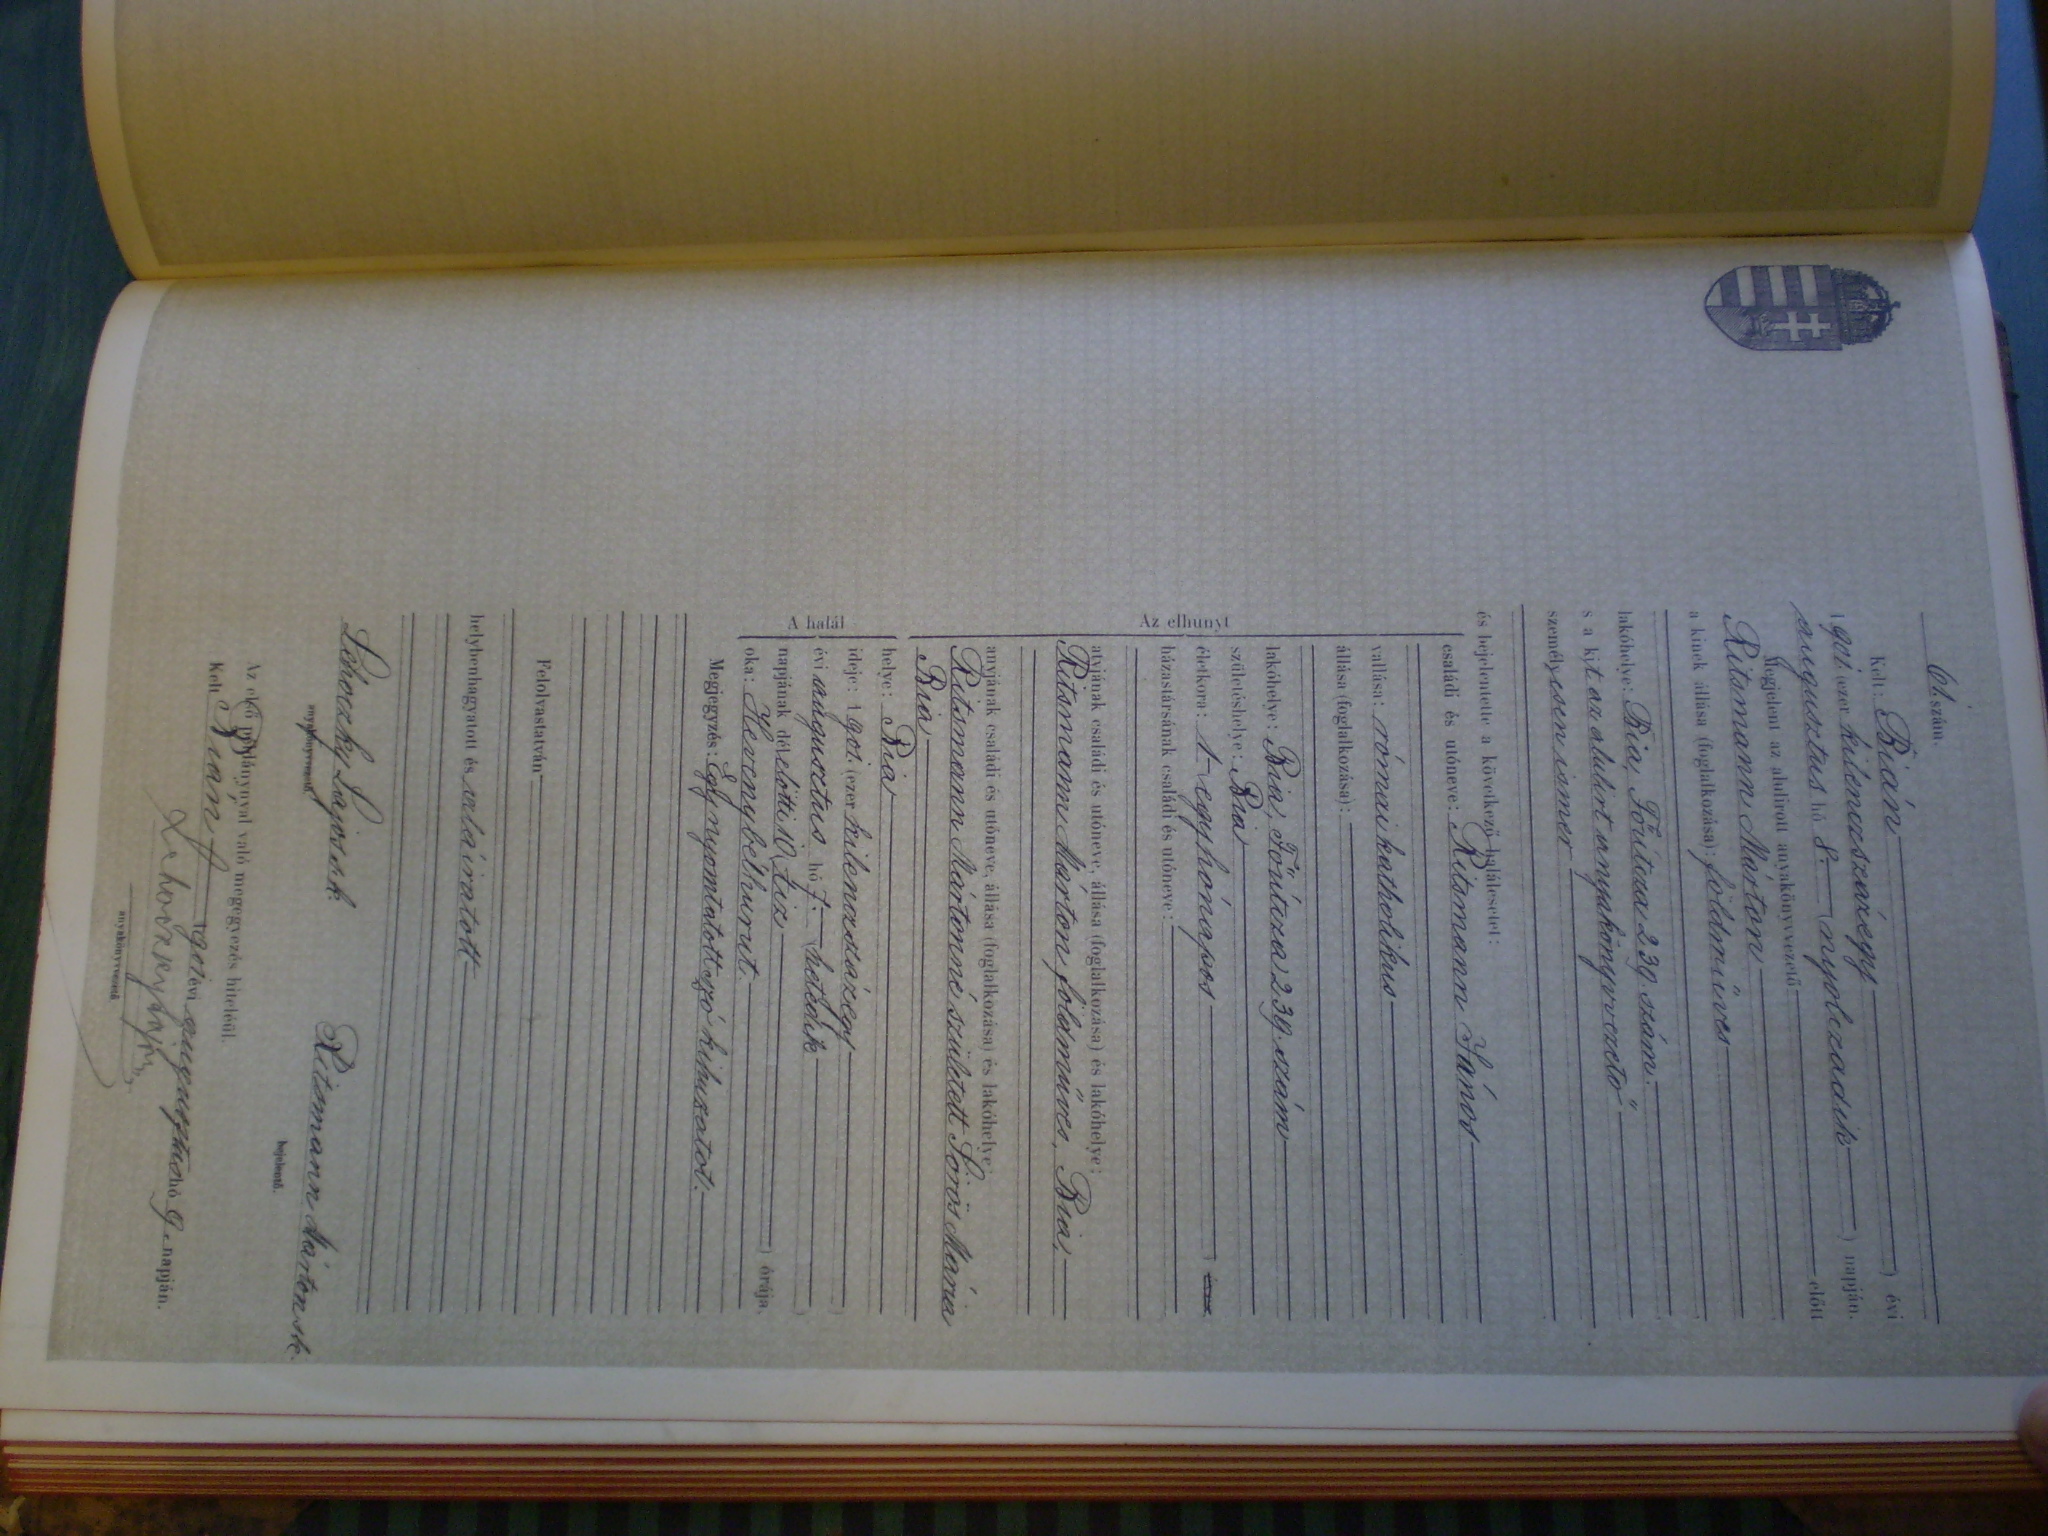 61. szám.
Kelt: Bián 
1901. (ezer kilenczszázegy ) évi
augusztus hó 8. (nyolczadik ) napján.
Megjelent az alulirott anyakönyvvezető előtt
Ritsmann Márton
a kinek állása (foglalkozása): földmüves
lakóhelye: Bia, Főútcza 239. szám.
s a kit az alulirt anyakönyvvezető
személyesen ismer
és bejelentette a következő halálesetet:
Az elhunyt
családi és utóneve: Ritsmann János
vallása: római katholikus
állása (foglalkozása):
lakóhelye: Bia, Főútcza 239. szám
születéshelye: Bia
életkora: 1- egy hónapos
házastársának családi és utóneve:
atyjának családi és utóneve, állása (foglalkozása) és lakóhelye:
Ritsmann Márton, földmüves, Bia,
anyjának családi és utóneve, állása (foglalkozása) és lakóhelye:
Ritsmann Mártonné született Sörös Mária
Bia
A halál
helye: Bia
ideje: 1901. (ezer kilenczszázegy )
évi augusztus hó 7. (hetedik )
napjának délelőtti 10 (tiz ) órája.
oka: Heveny bélhurut.
Megjegyzés: Egy nyomtatott szó kihuzatott.
Felolvastatván
helybenhagyatott és aláiratott
Lehoczky Lajos s.k.
anyakönyvvezető.
Ritsmann Márton sk.
bejelentő.
Az első példánynyal való megegyezés hiteléül.
Kelt Bián 1901 évi augusztus hó 9. napján.
Lehoczky Lajos
anyakönyvvezető